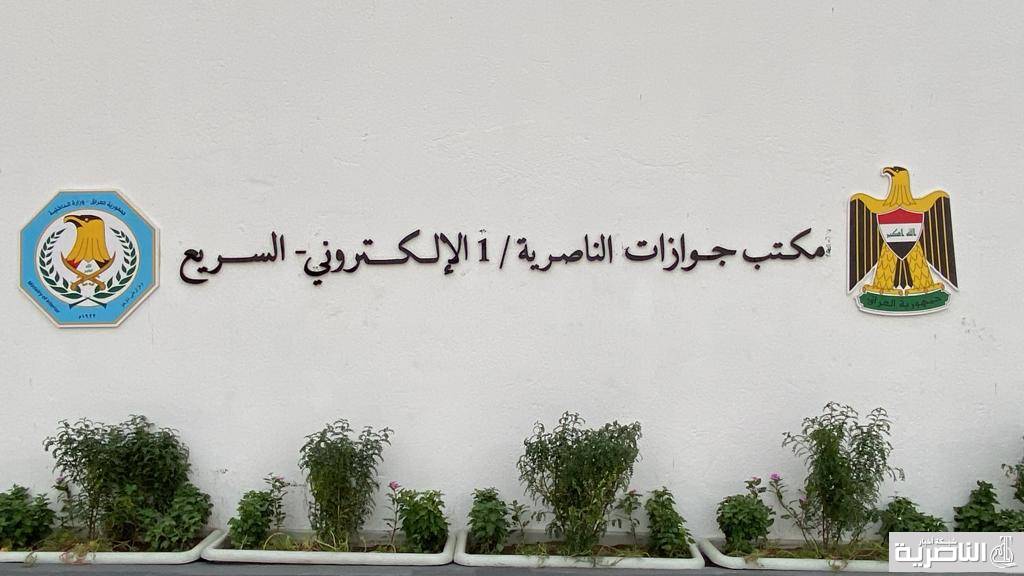 مكتب جوازات الناصرية / 1 الإلكتروني - السريع
الله اكبر
جمهورية العراق
جمهورية العراق - وزارة الداخلية
Ministry of Interior
١٩٢٢م
شبكة أخبار
الناصرية